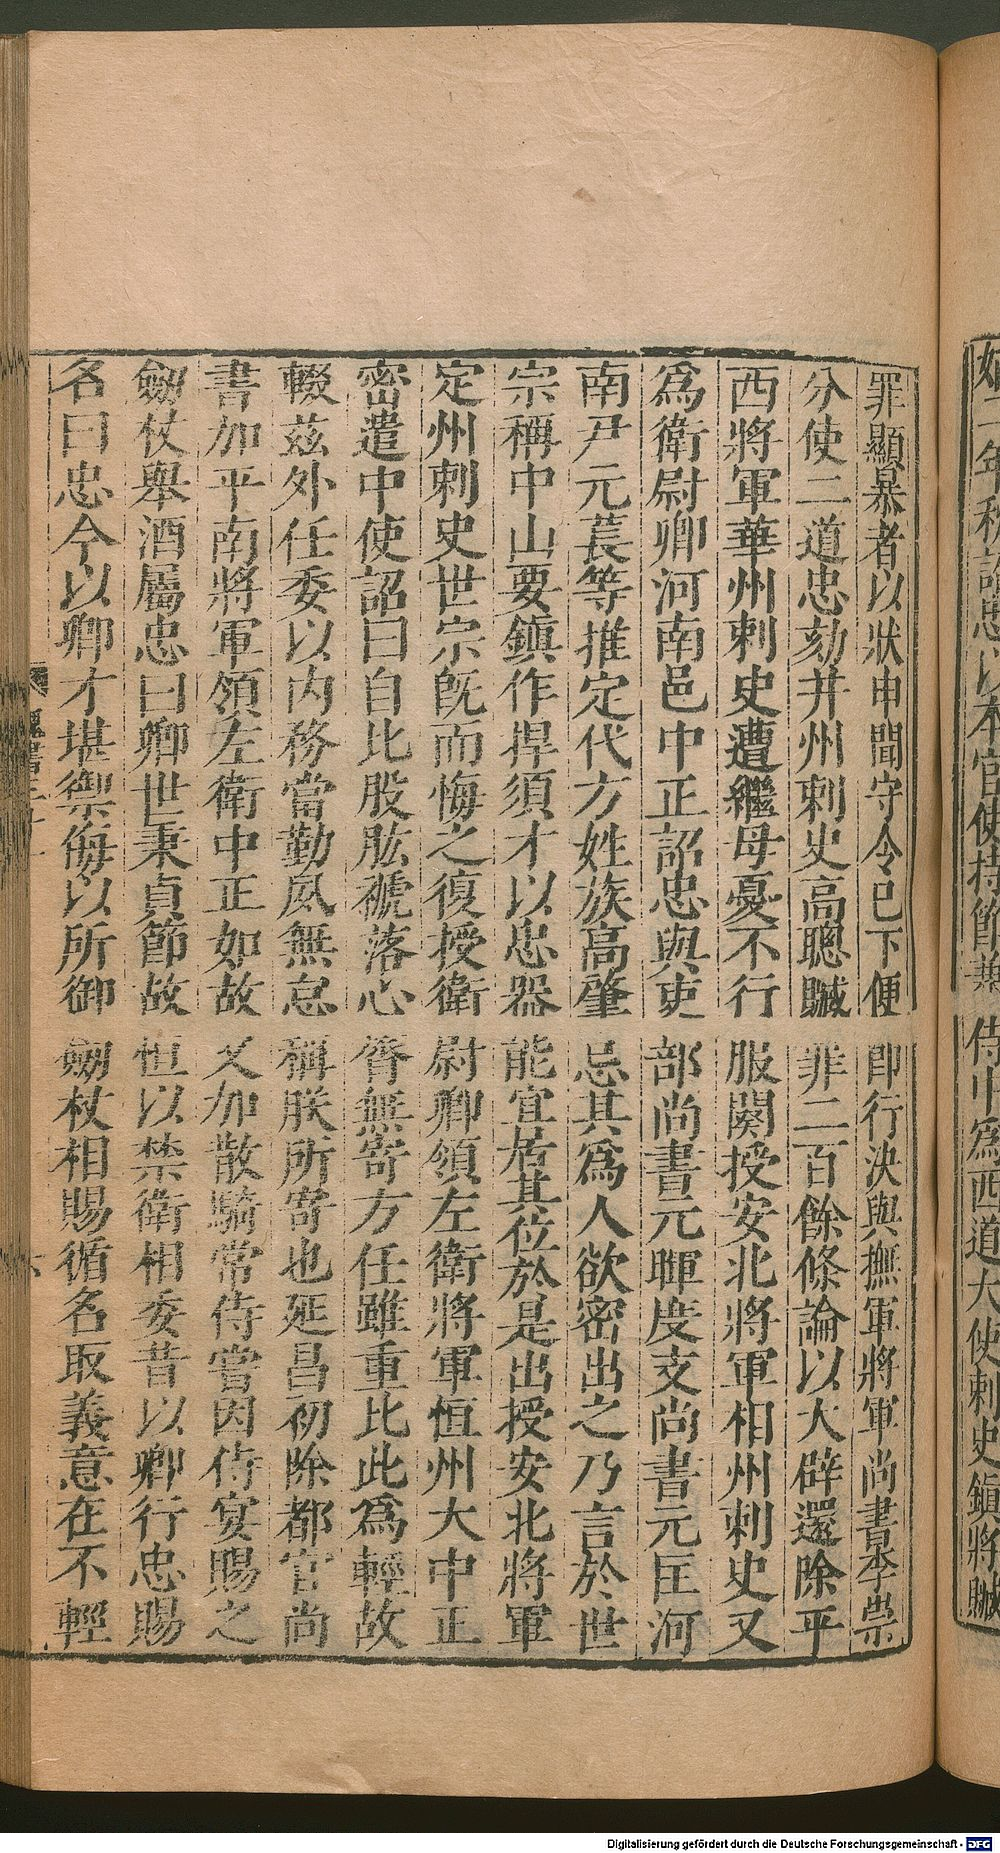 始二年秋詔忠以本官使持節兼侍中爲西道大使刺史鎮將贓
罪顯暴者以狀申聞守令已下便即行決與撫軍將軍尚書李崇
分使二道忠劾并州刺史高聰贓罪二百餘條論以大辟還除平
西將軍華州刺史遭繼母憂不行服闋授安北將軍相州刺史又
爲衛尉卿河南邑中正詔忠與吏部尚書元暉度支尚書元匡河
南尹元萇等推定代方姓族高肇忌其爲人欲密出之乃言於世
宗稱中山要鎮作捍須才以忠器能宜居其位於是出授安北將軍
定州刺史世宗旣而悔之復授衛尉卿領左衛將軍恒州大中正
密遣中使詔曰自比股肱褫落心膂無寄方任雖重比此爲輕故
輟茲外任委以内務當勤夙無怠稱朕所寄也延昌初除都官尚
書加平南將軍領左衛中正如故又加散騎常侍嘗因侍宴賜之
劒杖舉酒屬忠曰卿世秉貞節故恒以禁衛相委昔以卿行忠賜
名曰忠今以卿才堪禦侮以所御劒杖相賜循名取義意在不輕
Digitalisierung gefördert durch die Deutsche Forschungsgemeinschaft - DFG